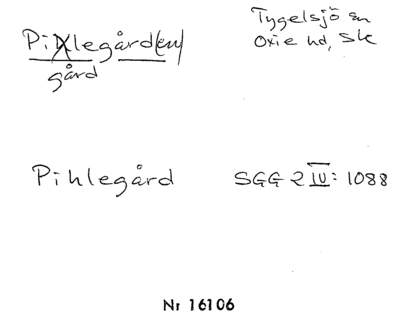 Pihlegård(en)
Tygelsjö sn
gård
Oxie hd, Sk
Pihlegård SGG 2 IV: 1088
Nr 16106